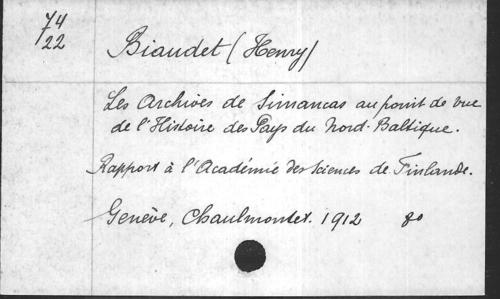 74
22
Biaudet (Henry)
Les Archives de Simancas au point de vue
de l'Histoire des Pays du Nord-Baltique.
Rapport à l'Académie des Sciences de Finlande.
Genève, Chaulmontet. 1912 8o